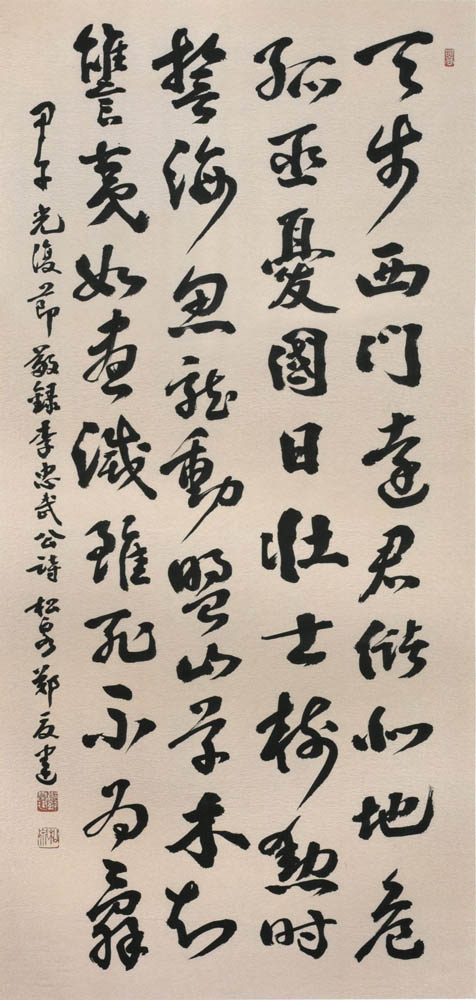 天步西門遠君儲北地危
孤臣憂國日壯士樹勳時
誓海魚龍動盟山草木知
讐夷如盡滅雖死不爲辭
甲午光復節敬錄李忠武公詩 松泉 鄭夏建